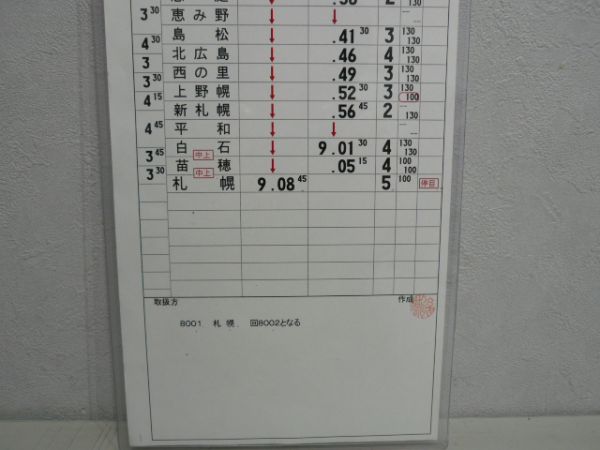 3 30
恵み野 ↓ ↓ -- --
島松 ↓ .41 30 3 130 130
4 30
北広島 ↓ .46 4 130 130
3
西の里 ↓ .49 3 130 130
3 30
上野幌 ↓ .52 30 3 130 100
4 15
新札幌 ↓ .56 45 2 -- 130
平和 ↓ ↓ -- --
4 45
白石 ↓ 9.01 30 4 130 130
3 45 中上
苗穂 ↓ .05 15 4 100 100
3 30 中上
札幌 9.08 45 5 100 停目
取扱方 作成
8001 札幌 回8002となる